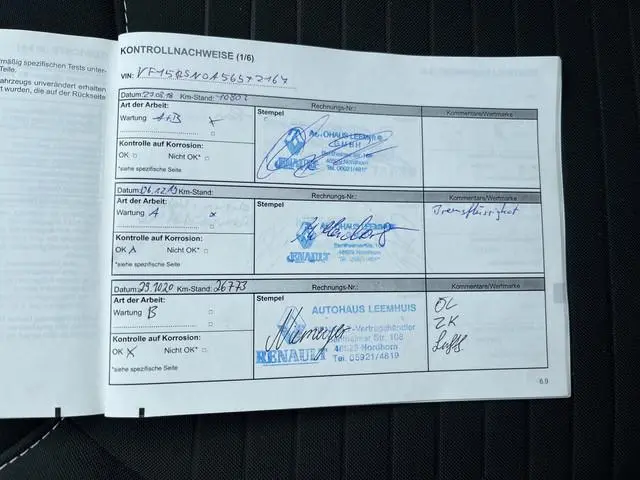 mäßig spezifischen Tests unter-
Teile.
ahrzeugs unverändert erhalten
t wurden, die auf der Rückseite
KONTROLLNACHWEISE (1/6)
VIN:
Datum: 27.08.18 Km-Stand: 10802
Rechnungs-Nr.:
Kommentare/Wertmarke
Art der Arbeit:
Stempel
Wartung A+B x
AUTOHAUS LEEMHUIS
GMBH
Kontrolle auf Korrosion:
OK □ Nicht OK* □
48529 Nordhorn
Tel. 05921/4819
RENAULT
*siehe spezifische Seite
Datum: 06.12.19 Km-Stand:
Rechnungs-Nr.:
Kommentare/Wertmarke
Art der Arbeit:
Stempel
Bremsflüssigkeit
Wartung A x
AUTOHAUS LEEMHUIS
Kontrolle auf Korrosion:
OK x Nicht OK* □
RENAULT
*siehe spezifische Seite
Datum: 29.10.20 Km-Stand: 26773
Rechnungs-Nr.:
Kommentare/Wertmarke
Art der Arbeit:
Stempel
AUTOHAUS LEEMHUIS
ÖL
Wartung B
-Vertragshändler
ZK
Str. 108
Luft
Kontrolle auf Korrosion:
48529 Nordhorn
OK X Nicht OK* □
RENAULT Tel. 05921/4819
*siehe spezifische Seite
6.9